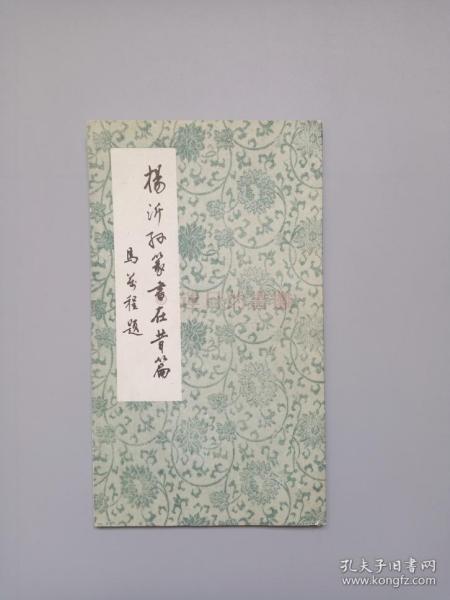 楊沂孫篆書在昔篇
馬萬程題
孔夫子旧书网
www.kongfz.com